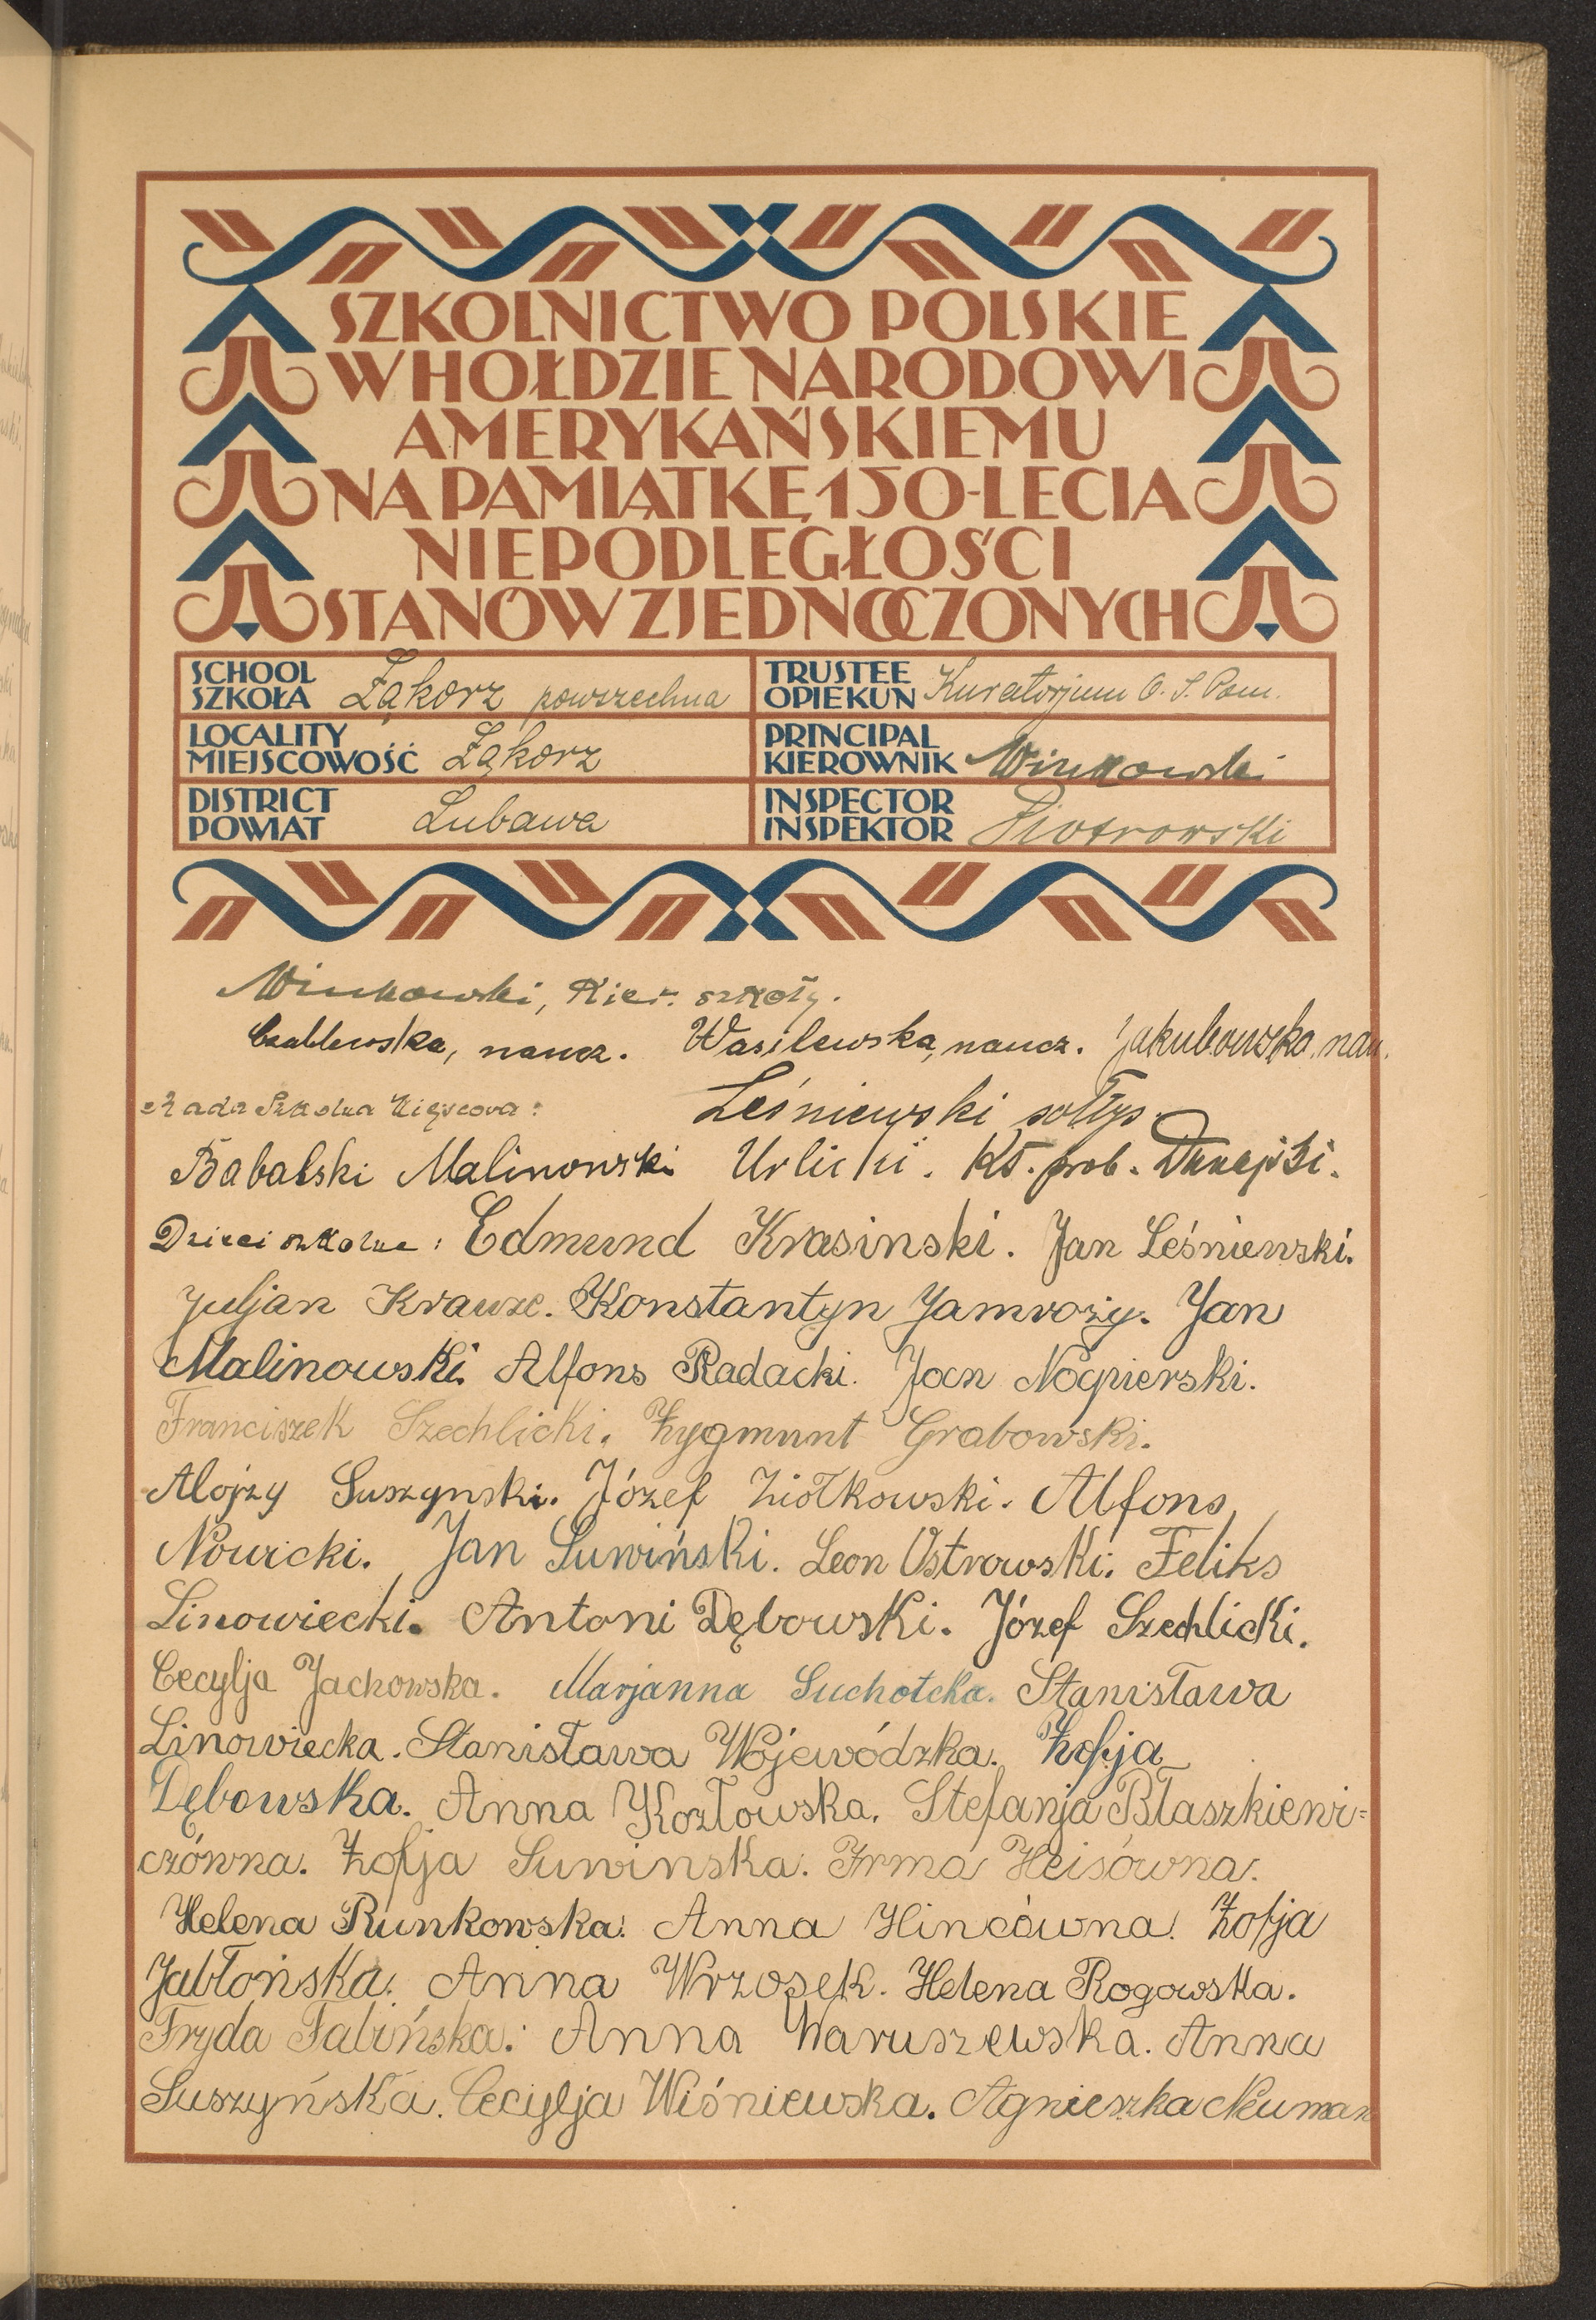 SZKOLNICTWO POLSKIE
W HOŁDZIE NARODOWI
AMERYKAŃSKIEMU
NA PAMIĄTKĘ 150-LECIA
NIEPODLEGŁOŚCI
STANÓW ZJEDNOCZONYCH
SCHOOL
SZKOŁA Łąkorz powszechna
TRUSTEE
OPIEKUN Kuratorjum O. S. Pom.
LOCALITY
MIEJSCOWOŚĆ Łąkorz
PRINCIPAL
KIEROWNIK Winkowski
DISTRICT
POWIAT Lubawa
INSPECTOR
INSPEKTOR Piotrowski
Winkowski, Kier. szkoły.
Czablewska, naucz. Wasilewska, naucz. Jakubowska, nau.
Rada Szkolna Miejscowa: Leśniewski sołtys.
Babalski Malinowski Urlicki. Ks. prob.
Dzieci szkolne: Edmund Krasinski. Jan Leśniewski.
Juljan Krauze. Konstantyn Jamroży. Jan
Malinowski. Alfons Radacki. Jan Nogpierski.
Franciszek Szechlicki. Zygmunt Grabowski.
Alojzy Suszynski. Józef Ziołkowski. Alfons
Nowicki. Jan Suwiński. Leon Ostrowski. Feliks
Linowiecki. Antoni Dębowski. Józef Szechlicki.
Cecylja Jachowska. Marjanna Suchotcka. Stanisława
Linowiecka. Stanisława Wojewódzka. Zofja
Dębowska. Anna Kozłowska. Stefanja Błaszkiewi=
czówna. Zofja Suwinska. Irma Heisówna.
Helena Runkowska. Anna Hincówna. Zofja
Jabłońska. Anna Wrzosek. Helena Rogowska.
Fryda Falińska. Anna Waruszewska. Anna
Suszyńska. Cecylja Wiśniewska. Agnieszka Neuman